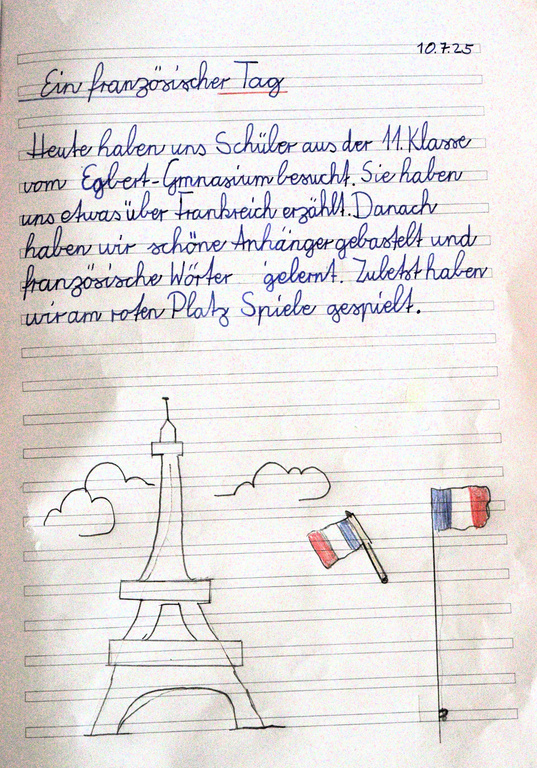 10.7.25
Ein französischer Tag
Heute haben uns Schüler aus der 11. Klasse
vom Egbert-Gmnasium besucht. Sie haben
uns etwas über Frankreich erzählt. Danach
haben wir schöne Anhänger gebastelt und
französische Wörter gelernt. Zuletzt haben
wir am roten Platz Spiele gespielt.